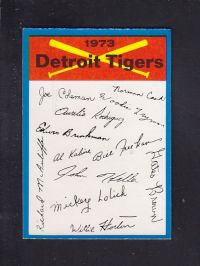 1973
Detroit Tigers
Norman Cash
Joe Coleman
Woodie Fryman
Aurelio Rodriguez
Edwin Brinkman
Al Kaline
Bill Freehan
Gates Brown
John Hiller
Mickey Lolich
Willie Horton
Richard McAuliffe